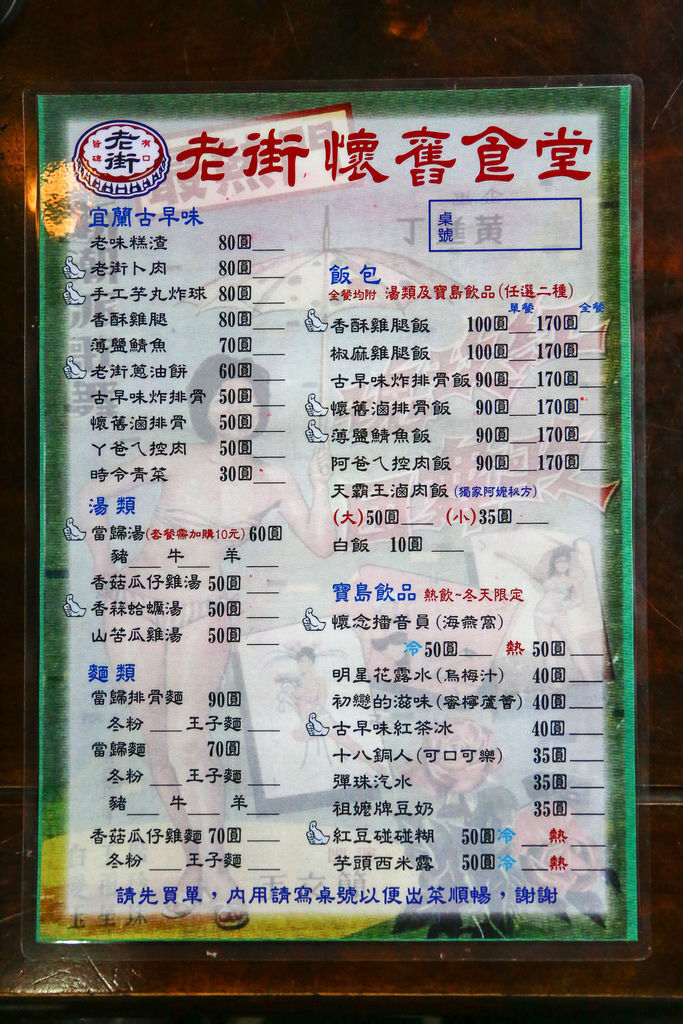 老街
有口
皆碑
老街懷舊食堂
桌號
宜蘭古早味
老味糕渣 80圓
老街卜肉 80圓
手工芋丸炸球 80圓
香酥雞腿 80圓
薄鹽鯖魚 70圓
老街蔥油餅 60圓
古早味炸排骨 50圓
懷舊滷排骨 50圓
ㄚ爸ㄟ控肉 50圓
時令青菜 30圓
湯類
當歸湯(套餐需加購10元) 60圓
豬 牛 羊
香菇瓜仔雞湯 50圓
香菻蛤蠣湯 50圓
山苦瓜雞湯 50圓
麵類
當歸排骨麵 90圓
冬粉 王子麵
當歸麵 70圓
冬粉 王子麵
豬 牛 羊
香菇瓜仔雞麵 70圓
冬粉 王子麵
飯包
全餐均附 湯類及寶島飲品(任選二種)
單餐 全餐
香酥雞腿飯 100圓 170圓
椒麻雞腿飯 100圓 170圓
古早味炸排骨飯 90圓 170圓
懷舊滷排骨飯 90圓 170圓
薄鹽鯖魚飯 90圓 170圓
阿爸ㄟ控肉飯 90圓 170圓
天霸王滷肉飯 (獨家阿嬤秘方)
(大)50圓 (小)35圓
白飯 10圓
寶島飲品 熱飲~冬天限定
懷念播音員(海燕窩)
冷50圓 熱50圓
明星花露水(烏梅汁) 40圓
初戀的滋味(蜜檸蘆薈) 40圓
古早味紅茶冰 40圓
十八銅人(可口可樂) 35圓
彈珠汽水 35圓
祖嬤牌豆奶 35圓
紅豆碰碰糊 50圓冷 熱
芋頭西米露 50圓冷 熱
請先買單，內用請寫桌號以便出菜順暢，謝謝